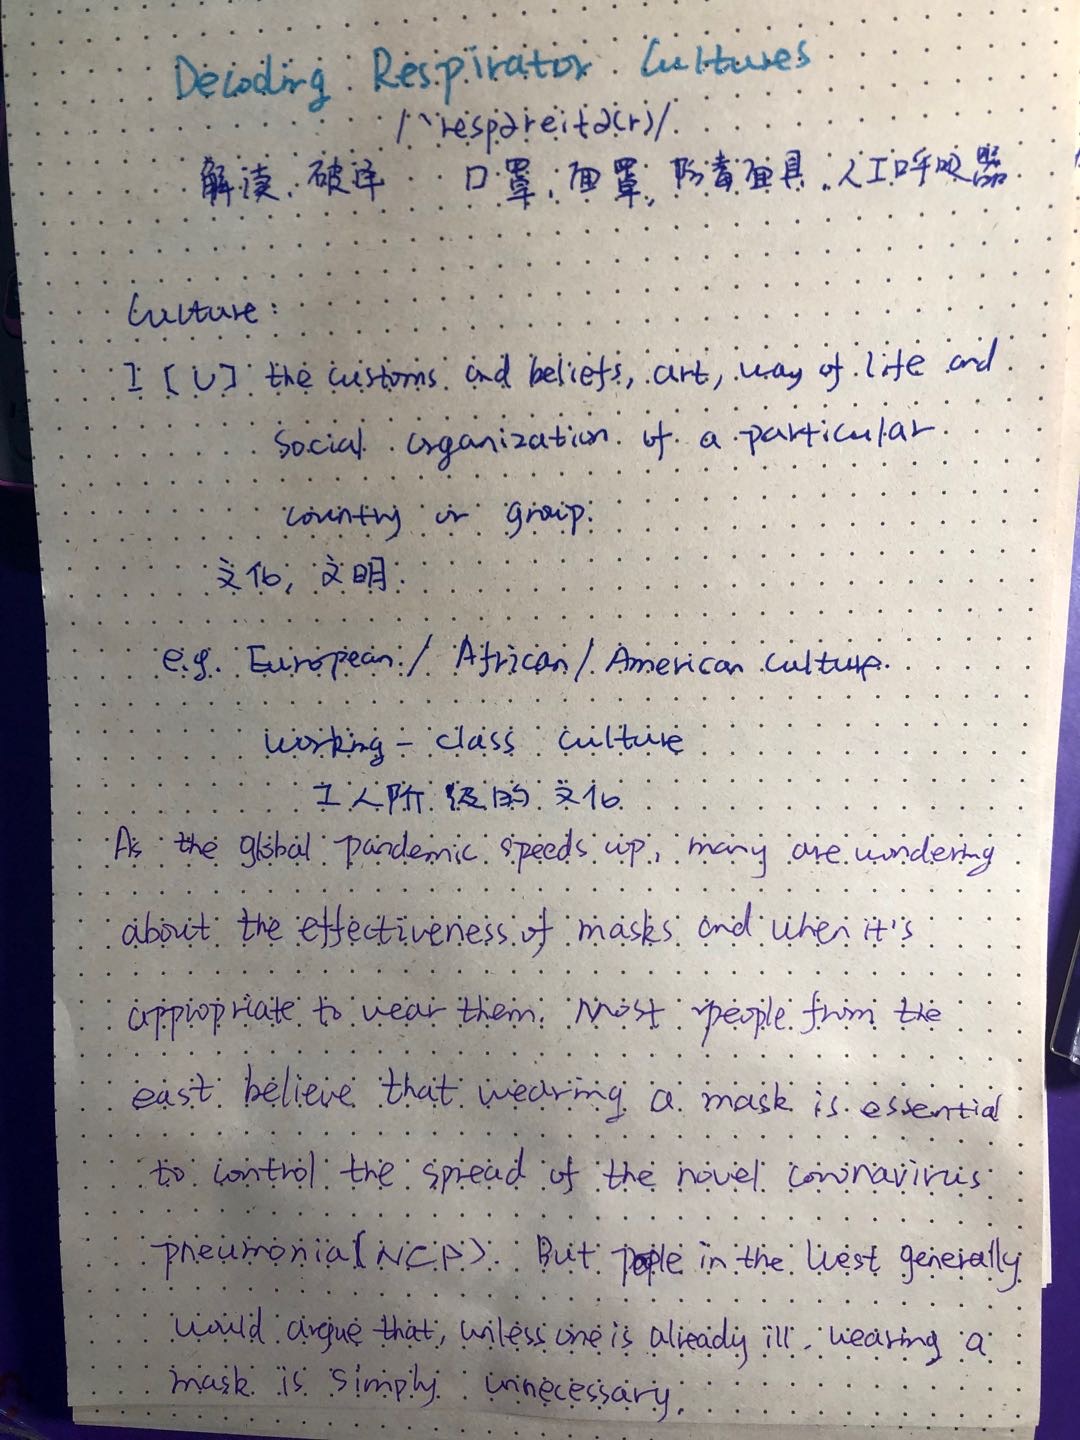 Decoding Respirator Cultures
/ˋrespəreitə(r)/.
解读、破译 口罩、面罩、防毒面具、人工呼吸器
Culture:
I [U] the customs and beliefs, art, way of life and
social organization of a particular
country or group.
文化, 文明.
e.g. European / African / American culture.
working-class culture
工人阶级的文化
As the global pandemic speeds up, many are wondering
about the effectiveness of masks and when it's
appropriate to wear them. Most people from the
east believe that wearing a mask is essential
to control the spread of the novel coronavirus
pneumonia (NCP). But people in the West generally
would argue that, unless one is already ill, wearing a
mask is simply unnecessary.